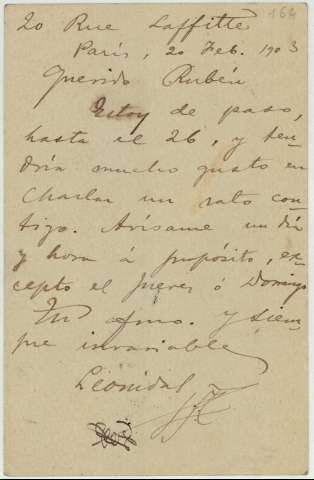 164
20 Rue Laffitte
París, 20 Feb. 1903
Querido Rubén
Estoy de paso,
hasta el 26, y ten-
dría mucho gusto en
charlar un rato con-
tigo. Avísame un día
y hora á propósito, ex-
cepto el Jueves ó Domingo
Tu afmo. y siem-
pre invariable
Leonidas